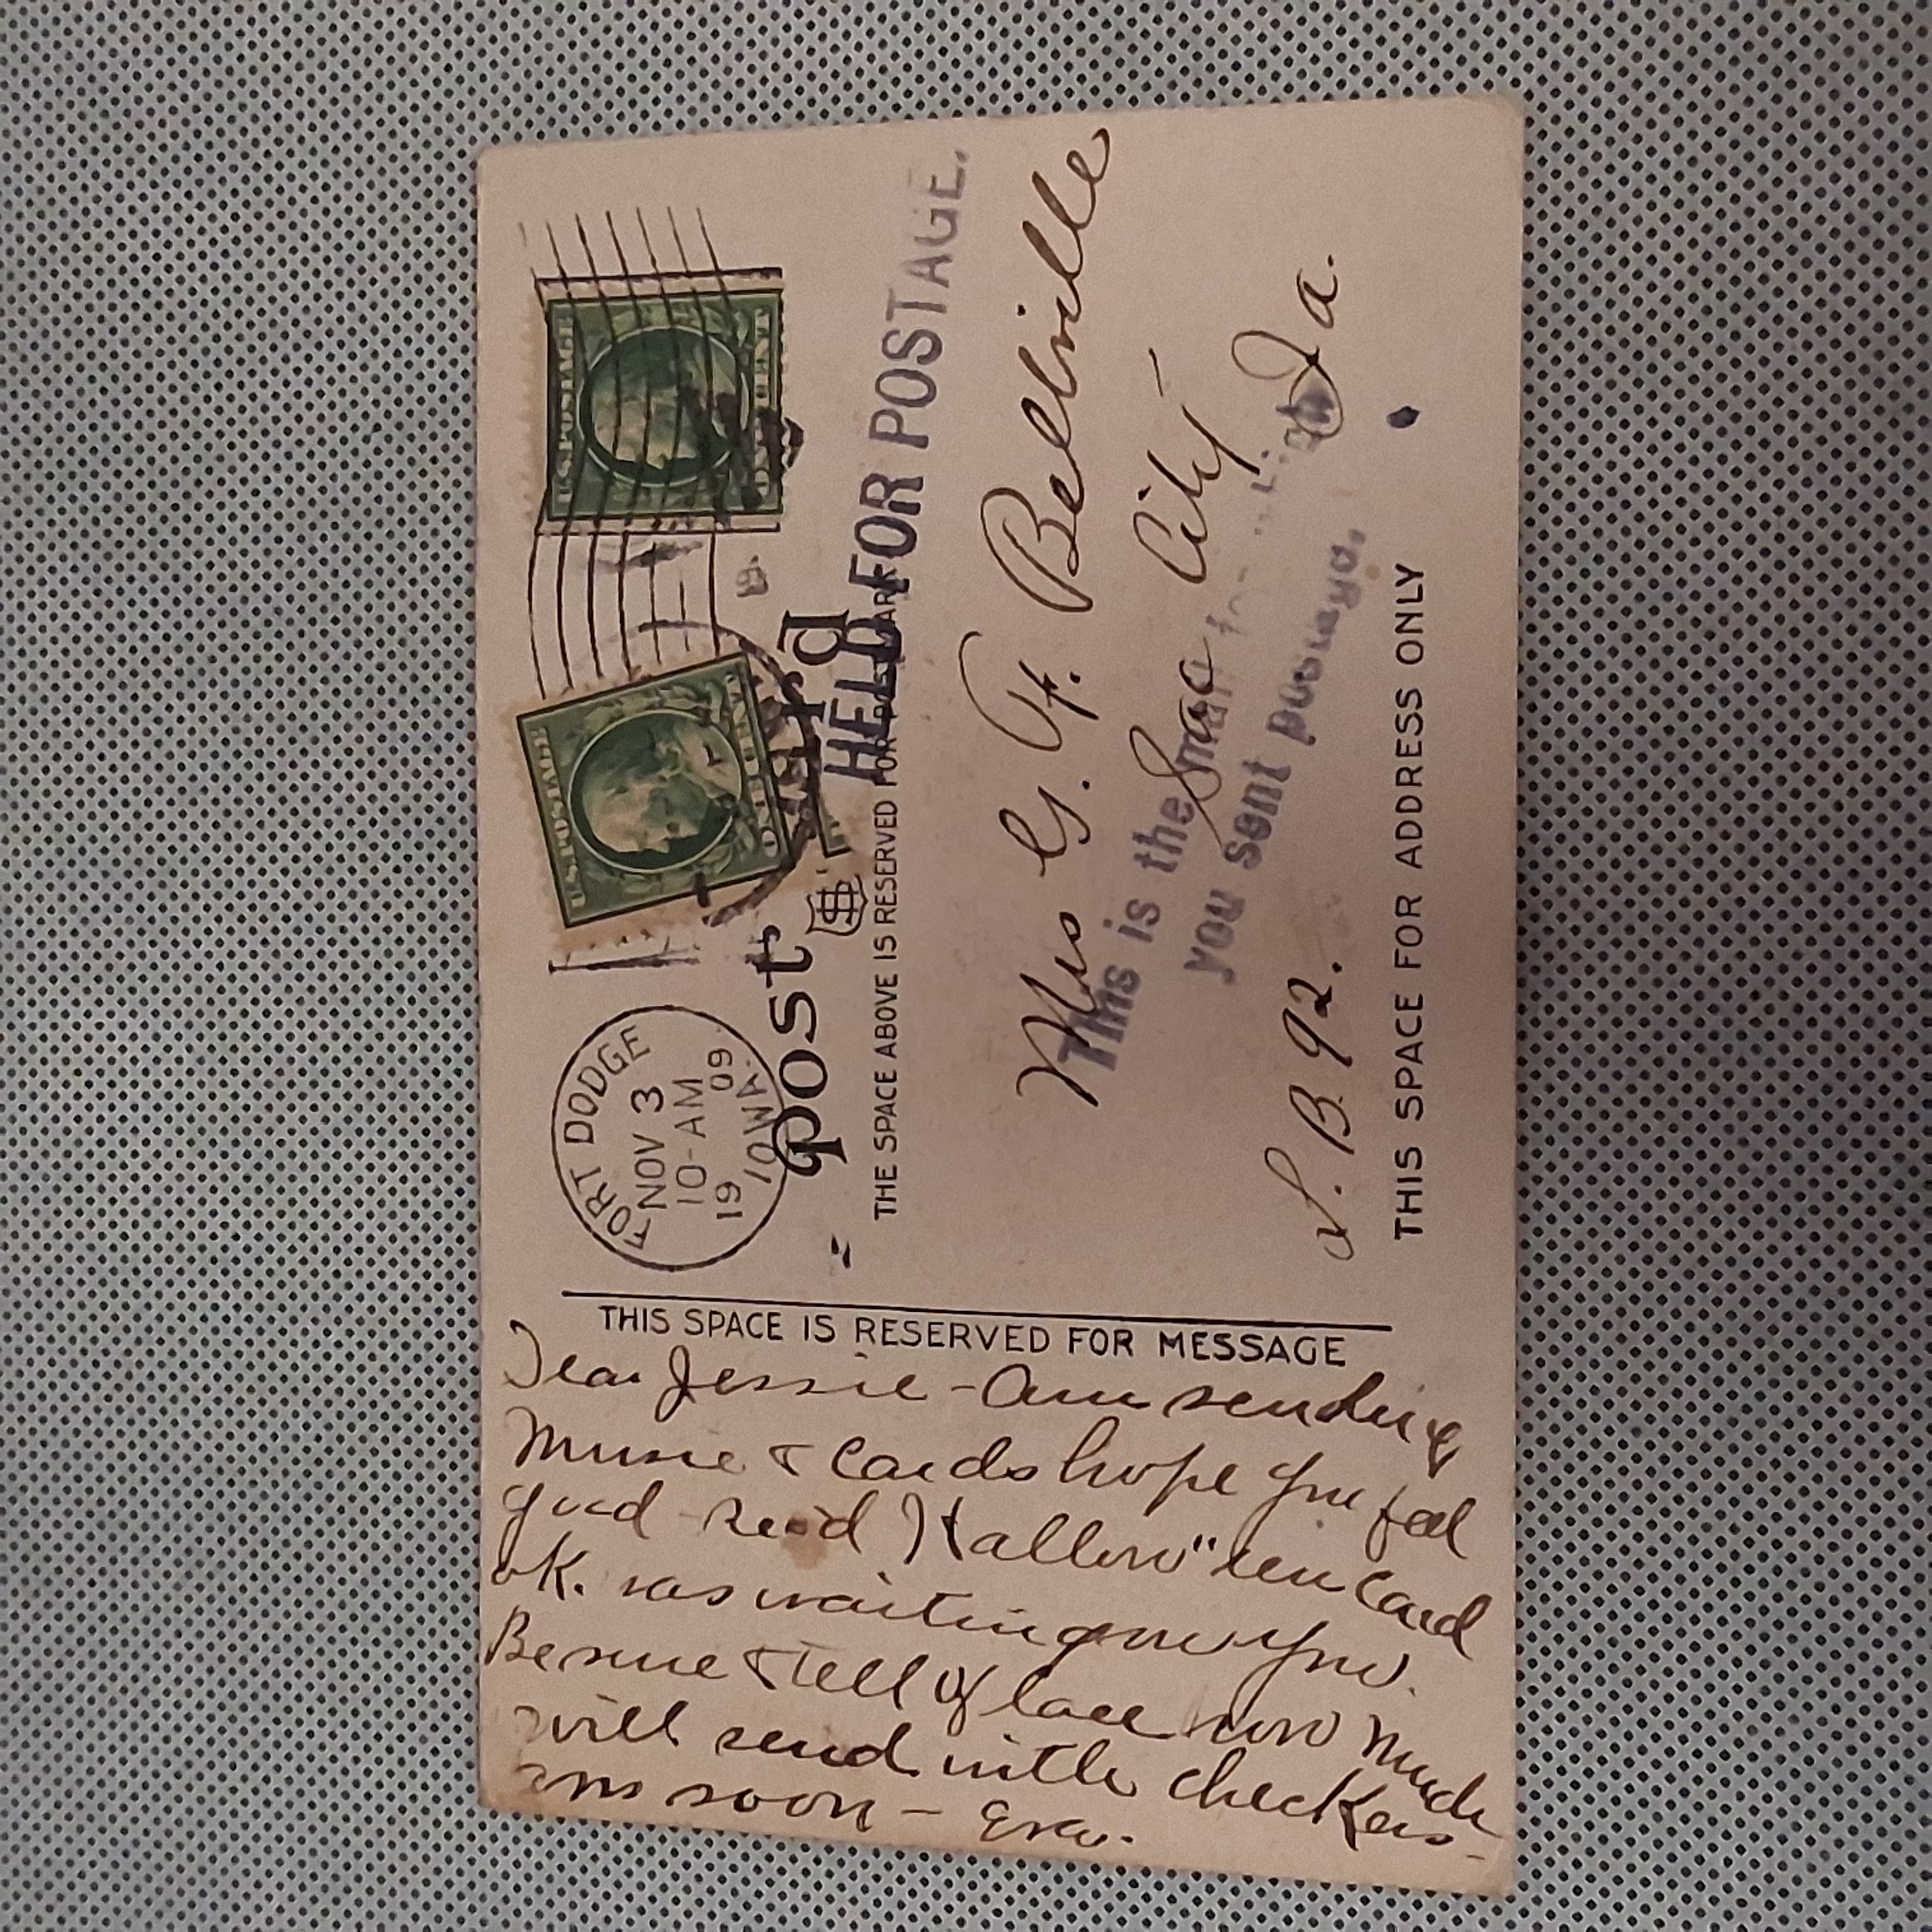 THIS SPACE IS RESERVED FOR MESSAGE
Dear Jessie - Am sending
Music & Cards hope you feel
good - Rec'd Hallow"een Card
ok. was waiting on you.
Be sure & tell of lace how much
will send with checkers -
soon -
FORT DODGE
NOV 3
10-AM
1909
IOWA.
U.S. POSTAGE
ONE CENT
U.S. POSTAGE
ONE CENT
Post Card
HELD FOR POSTAGE.
THE SPACE ABOVE IS RESERVED FOR POSTMARK
Mrs G. H. Bellville
Sac City -
Ia.
This is the mail for
you sent postage.
L. B. 92.
THIS SPACE FOR ADDRESS ONLY